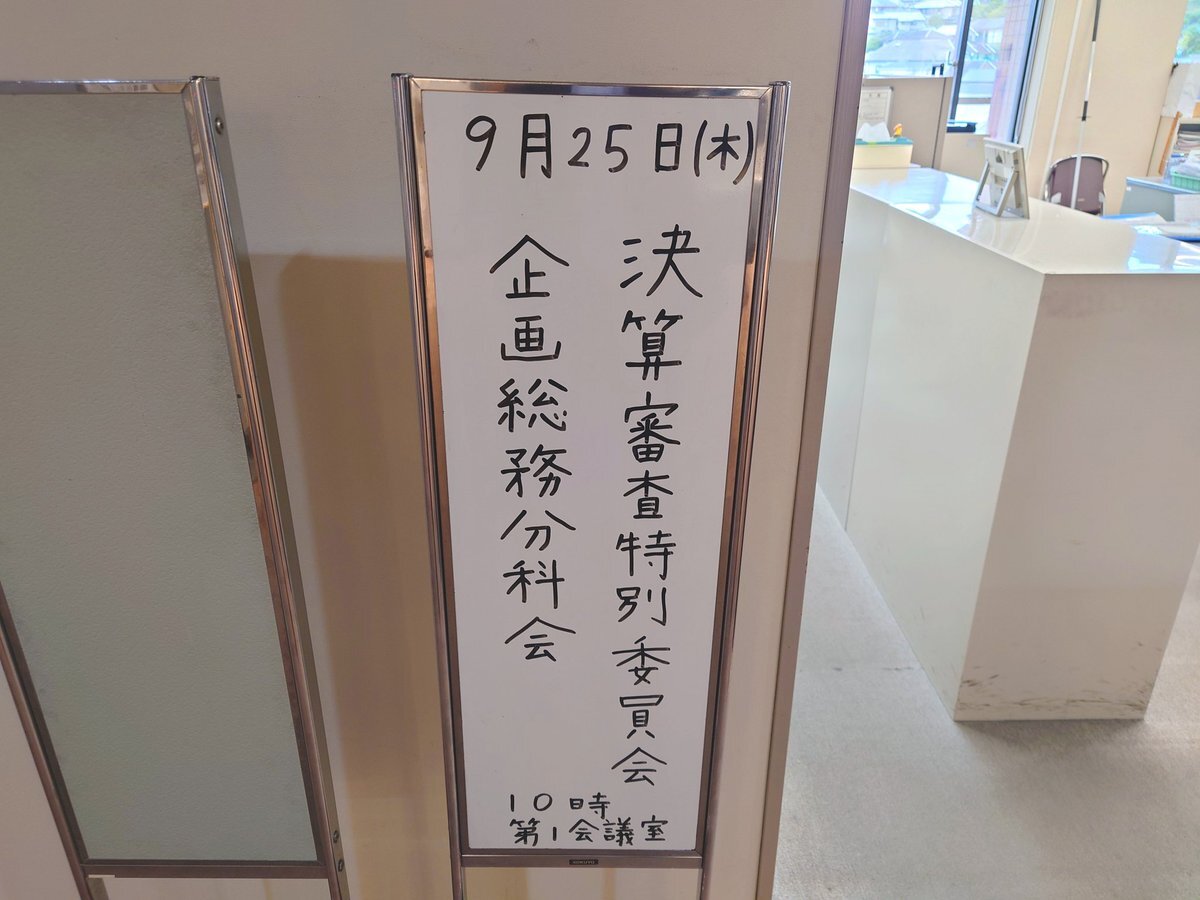 9月25日(木)
決算審査特別委員会
企画総務分科会
10時
第1会議室
KOKUYO